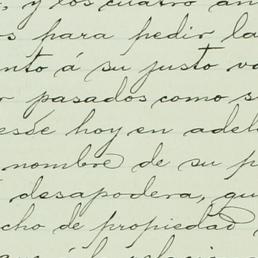 y los cuatro an
os para pedir la
nto á su justo va
r pasados como s
desde hoy en adel
nombre de su p
desapodera, qu
cho de propiedad